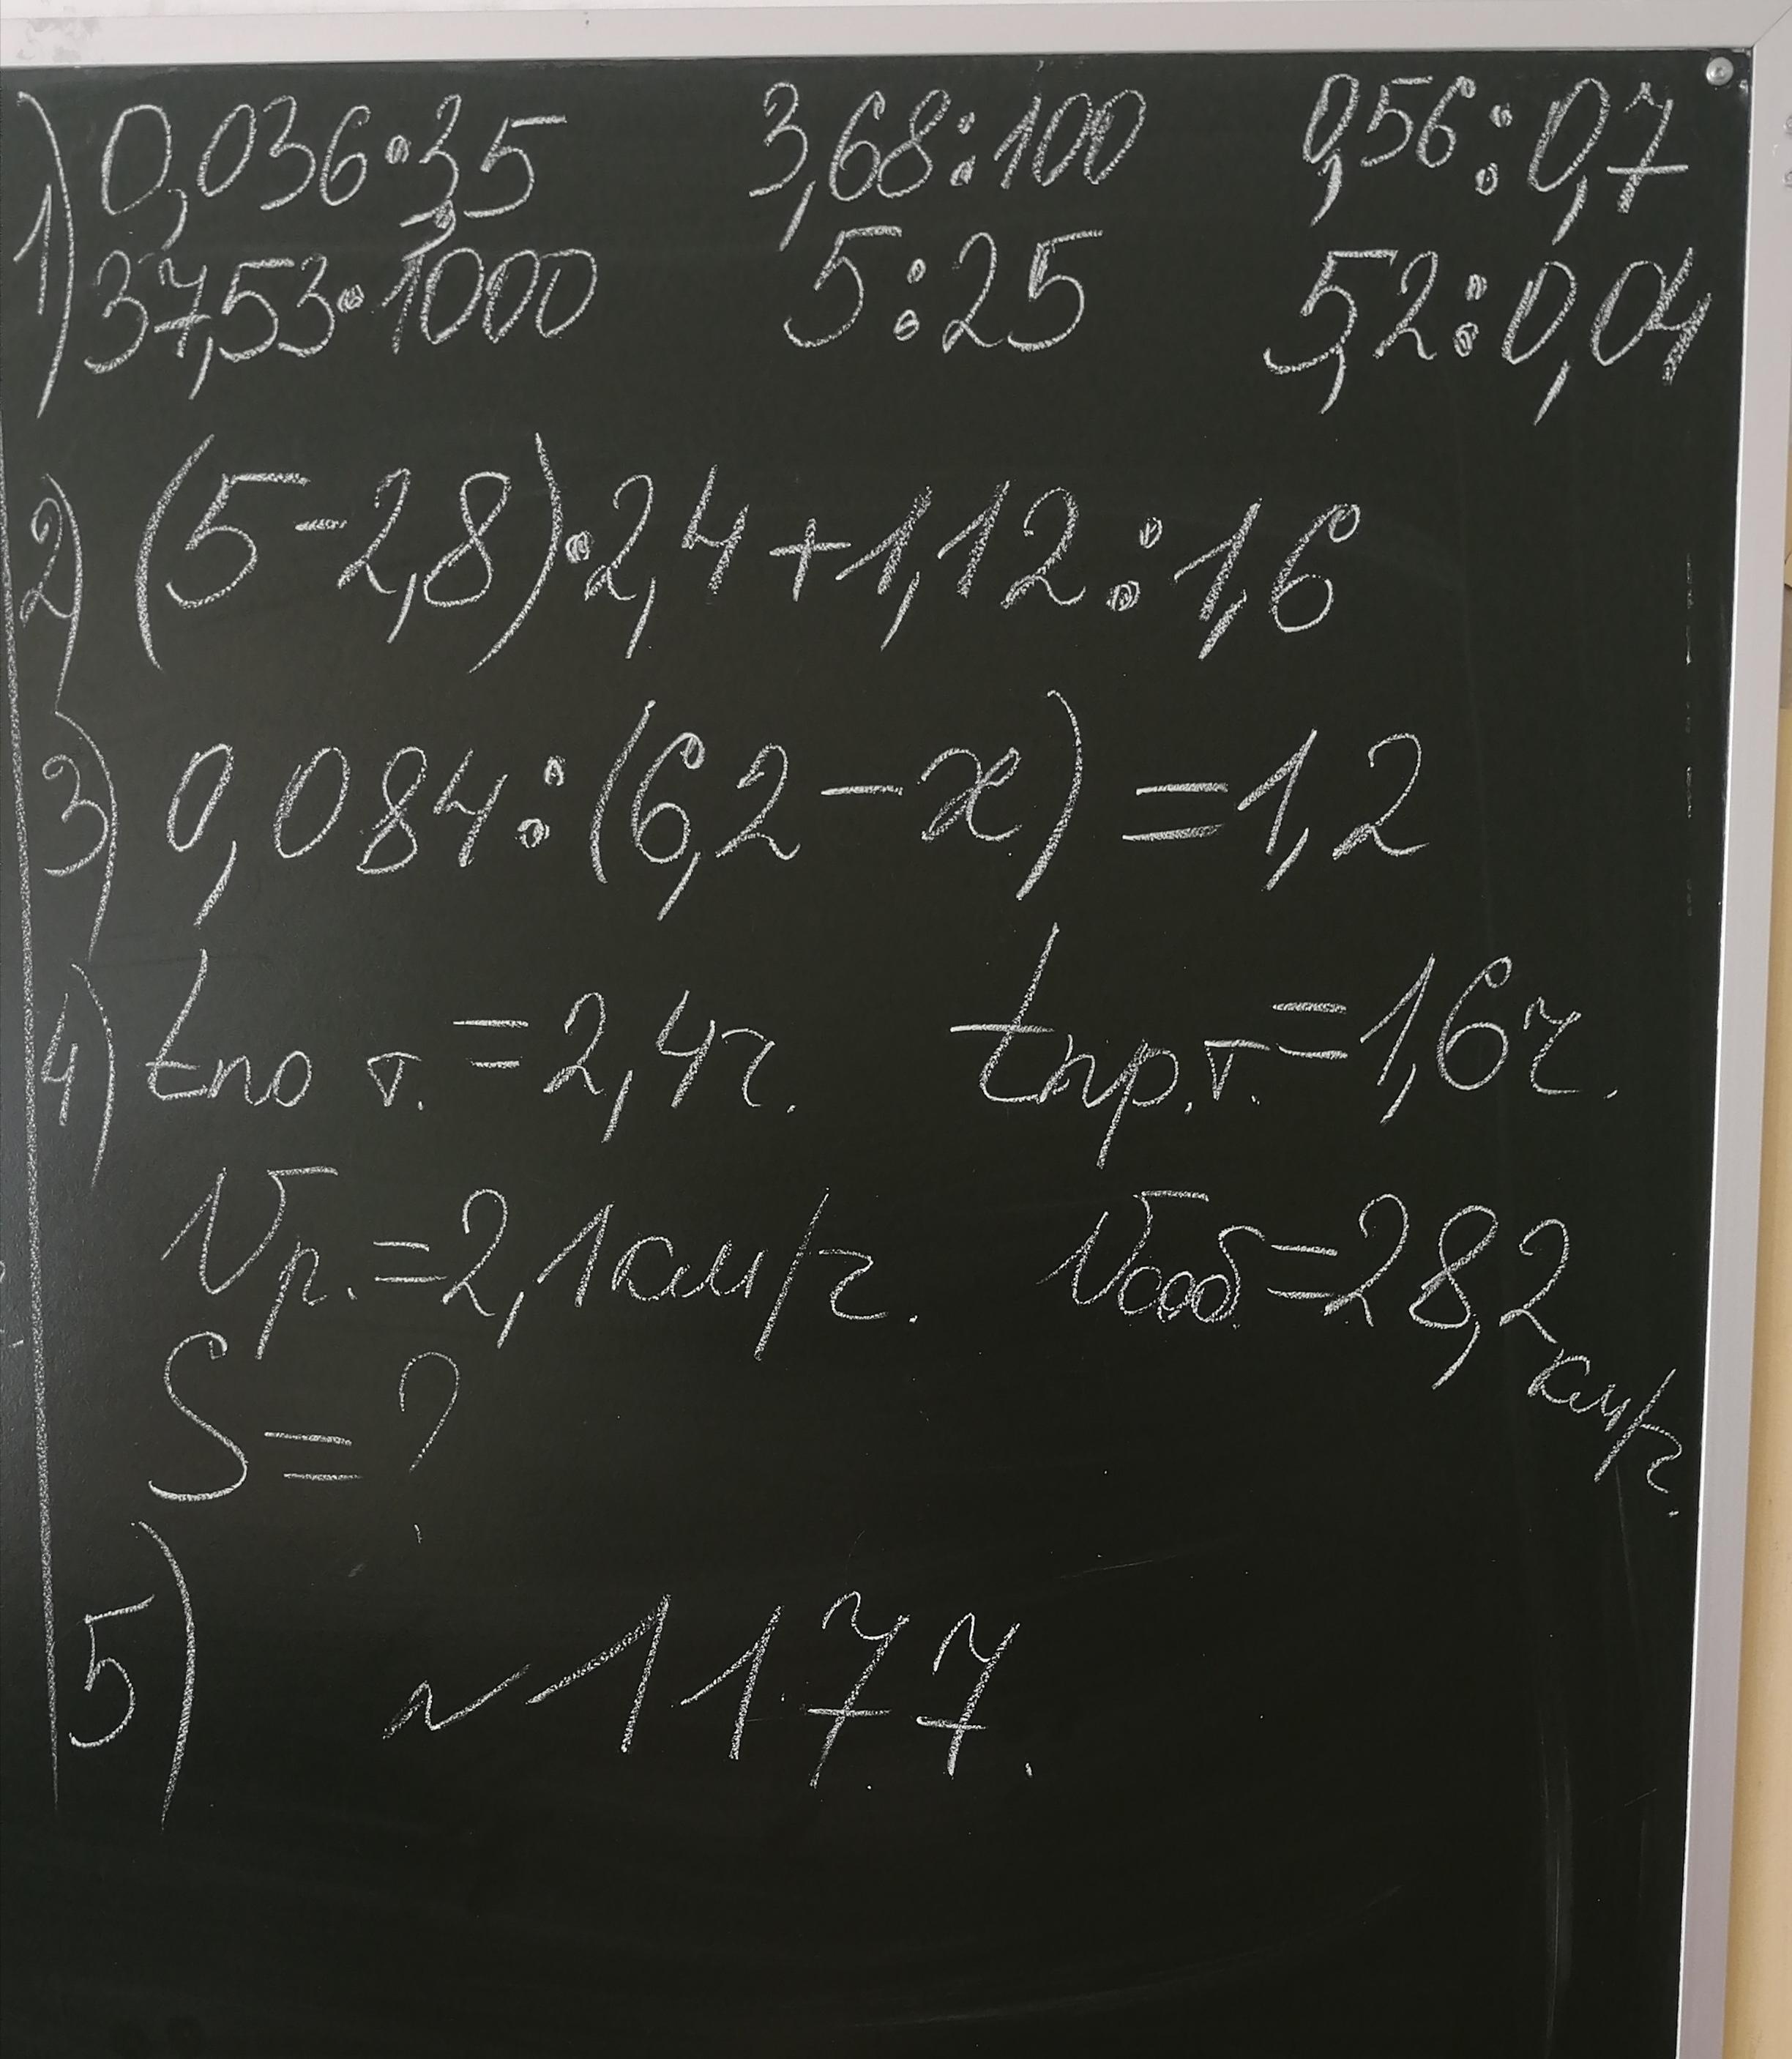 1) 0,036•3,5 3,68:100 0,56:0,7
37,53•1000 5:25 5,2:0,04
2) (5-2,8)•2,4+1,12:1,6
3) 0,084:(6,2-x)=1,2
4) tпо т. =2,4ч. tпр.т.=1,6ч.
Vр.=2,1км/ч. Vсоб.=28,2 км/ч.
S=?
5) ~1177.